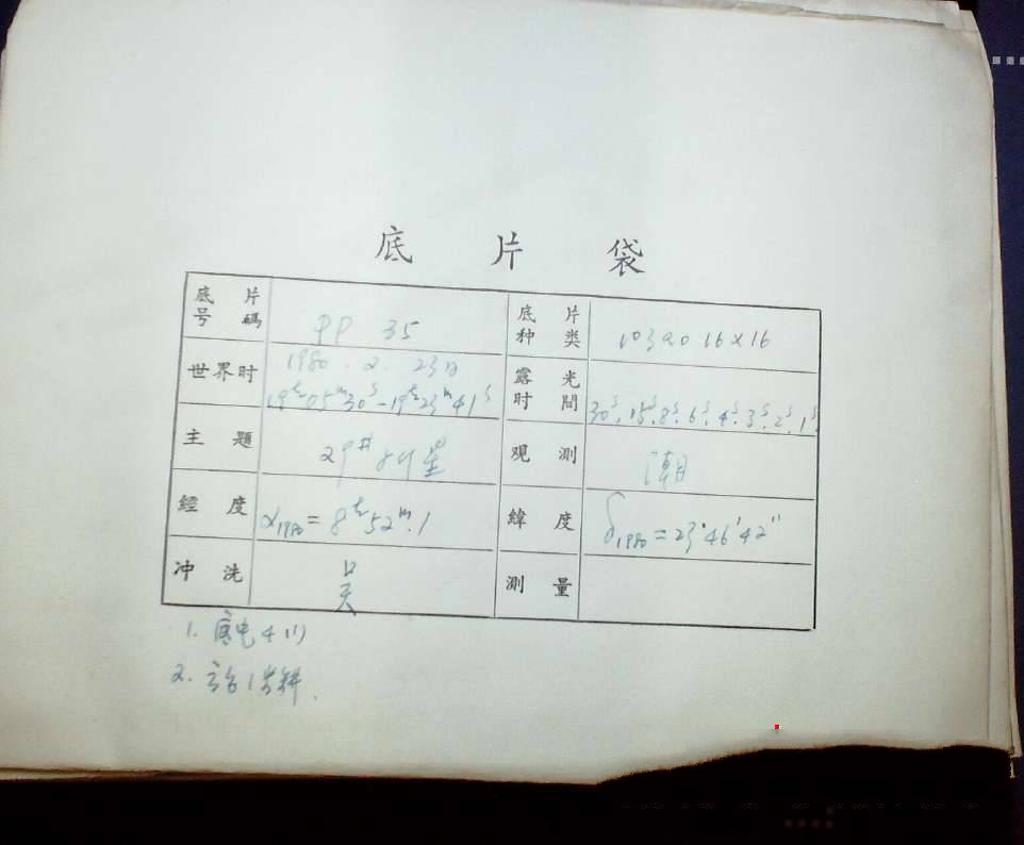 底 片 袋
底 片 号 碼 PP 35 底 片 种 类 103a0 16×16
世界时 1980.2.23日 19h05m30s-19h23m41s 露 光 时 間 30s.15s.8s.6s.4s.3s.2s.1s.
主 題 29# 星 观 測 潮
經 度 α1980=8h52m.1 緯 度 δ1980=23°46′42″
冲 洗 吴 測 量
1.
2.